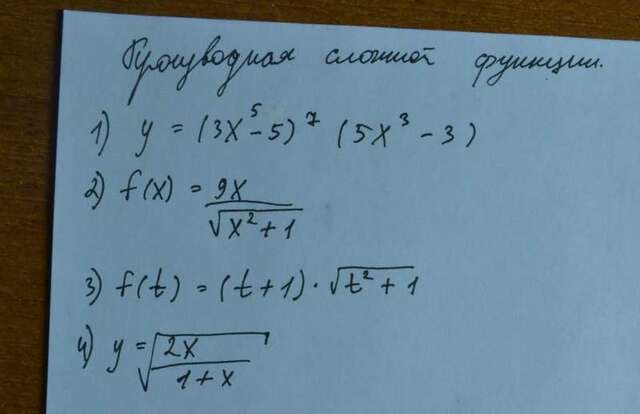 Производная сложной функции.
1) y = (3x⁵ - 5)⁷ (5x³ - 3)
2) f(x) = 9x / √(x² + 1)
3) f(t) = (t + 1) · √(t² + 1)
4) y = √(2x / (1 + x))